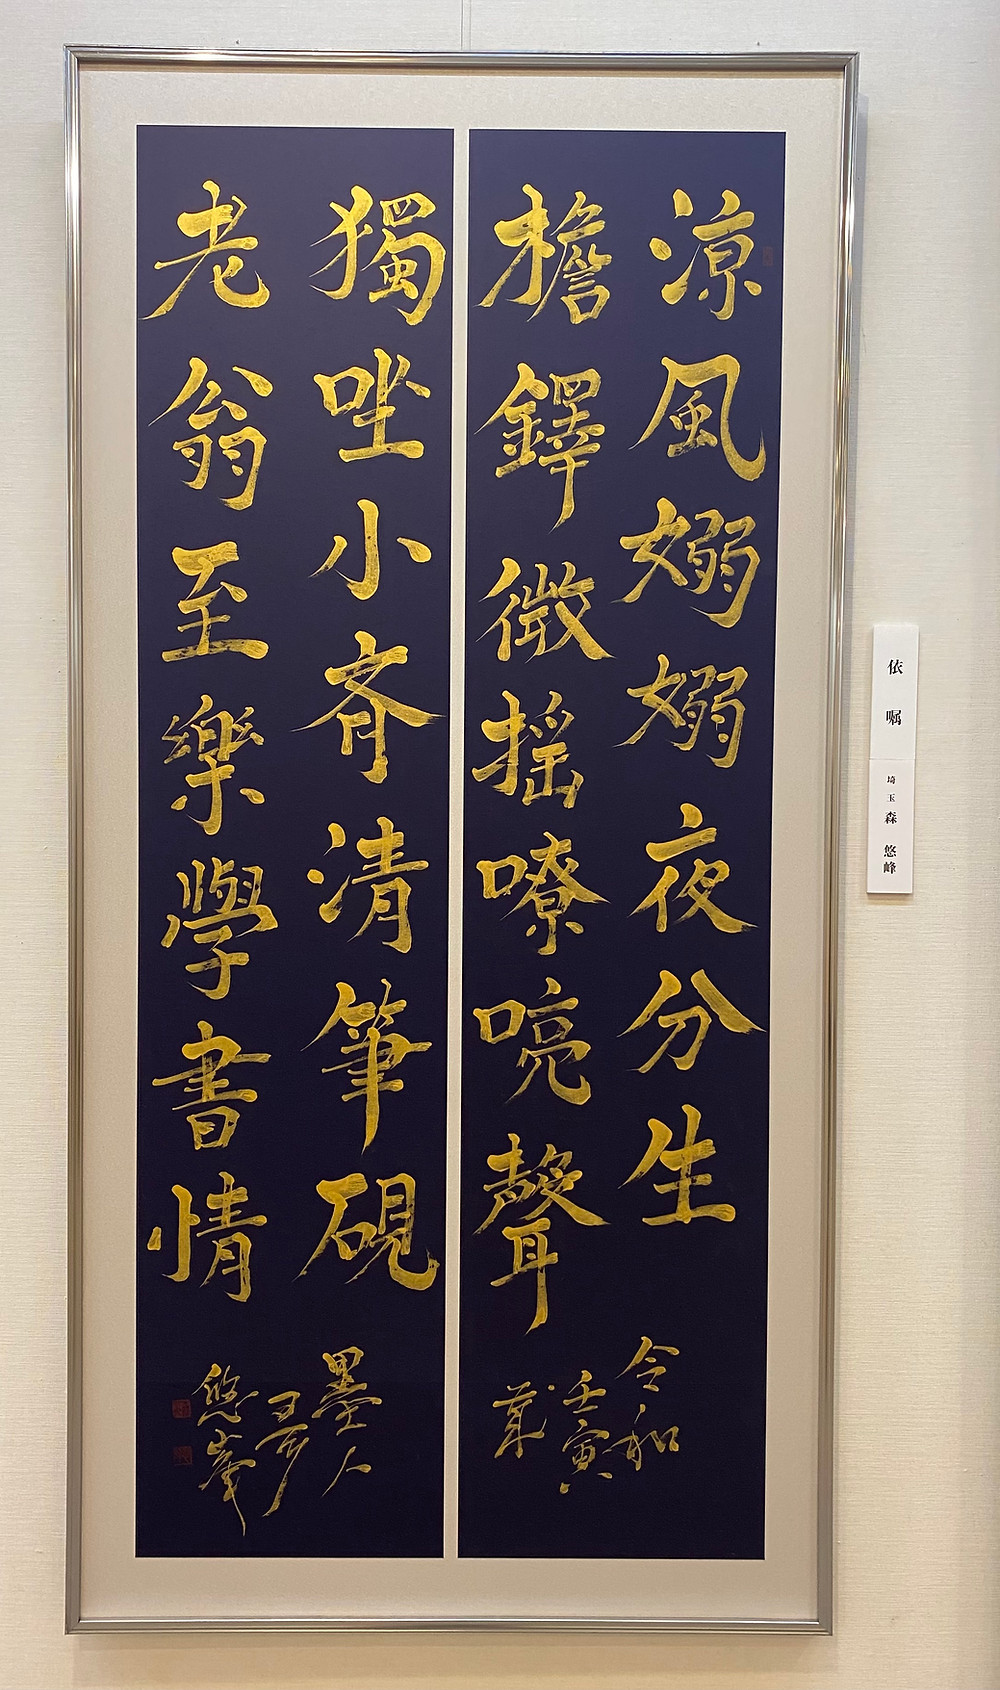 涼風嫋嫋夜分生
檐鐸微揺嘹喨聲
令和
壬寅
獨坐小斉清筆硯
老翁至樂學書情
墨人
悠峯
依嘱
埼玉 森 悠峰